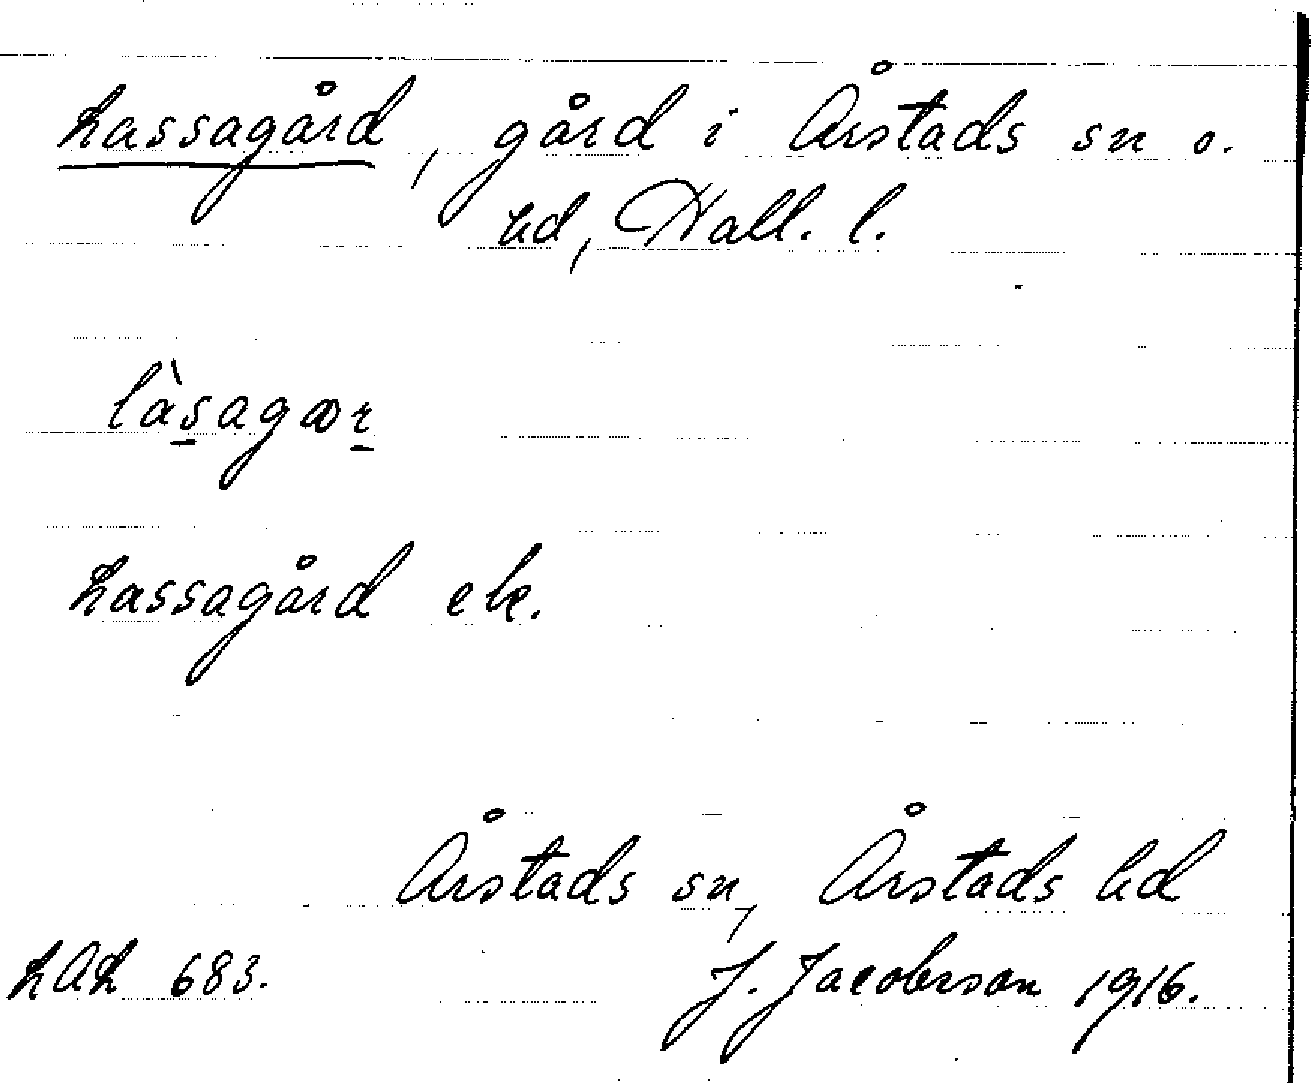 Lassagård, gård i Årstads sn o.
hd, Hall. l.
làsagær
Lassagård ek.
Årstads sn, Årstads hd
LAL 683. J. Jacobsson 1916.